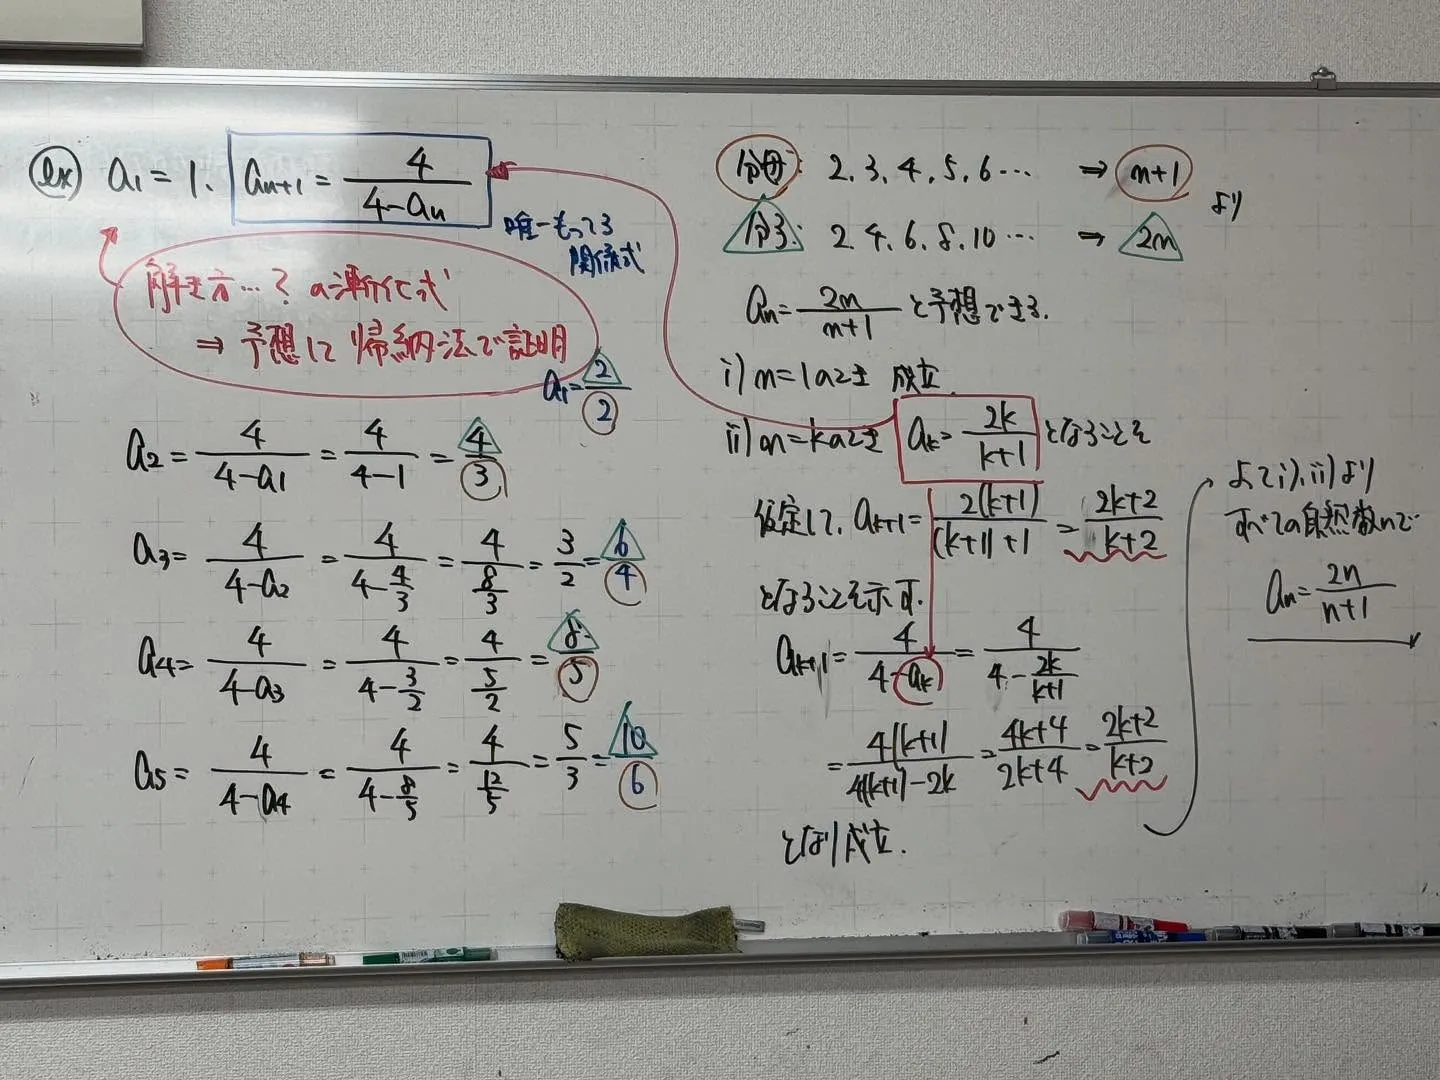 ex) a₁ = 1. aₙ₊₁ = 4/(4-aₙ)
唯一もってる
関係式
解き方…? の漸化式
⇒ 予想して 帰納法で証明
a₁ = 2/2
a₂ = 4/(4-a₁) = 4/(4-1) = 4/3
a₃ = 4/(4-a₂) = 4/(4-4/3) = 4/(8/3) = 3/2 = 6/4
a₄ = 4/(4-a₃) = 4/(4-3/2) = 4/(5/2) = 8/5
a₅ = 4/(4-a₄) = 4/(4-8/5) = 4/(12/5) = 5/3 = 10/6
分母: 2.3.4.5.6… ⇒ n+1
分子: 2.4.6.8.10… ⇒ 2n より
aₙ = 2n/(n+1) と予想できる.
i) n=1のとき 成立.
ii) n=kのとき aₖ = 2k/(k+1) となることを
仮定して. aₖ₊₁ = 2(k+1)/((k+1)+1) = (2k+2)/(k+2)
となることを示す.
aₖ₊₁ = 4/(4-aₖ) = 4/(4-2k/(k+1))
= 4(k+1)/(4(k+1)-2k) = (4k+4)/(2k+4) = (2k+2)/(k+2)
となり成立.
よってi),ii)より
すべての自然数nで
aₙ = 2n/(n+1)